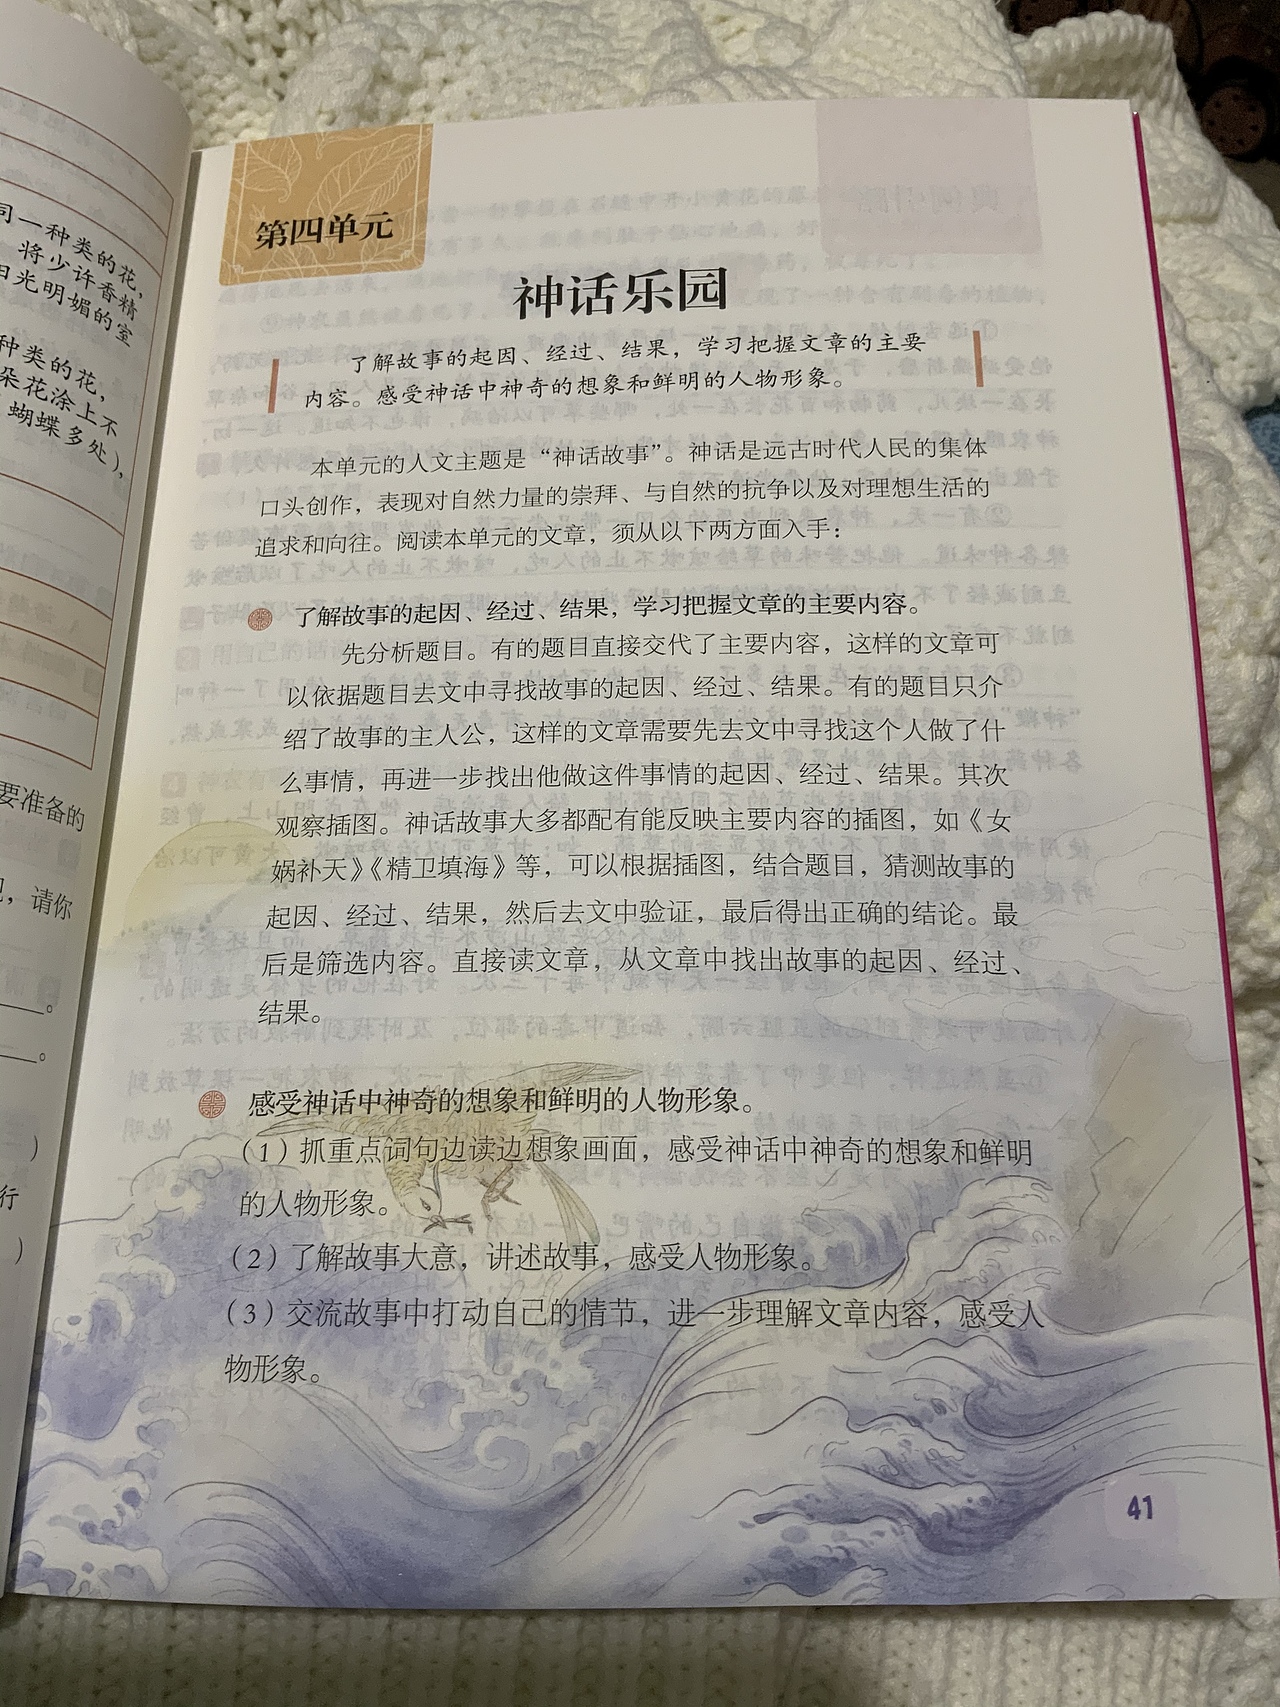 同一种类的花，
将少许香精
日光明媚的室
种类的花，
朵花涂上不
蝴蝶多处），
要准备的
，请你
。
。
）
行
）
第四单元
神话乐园
了解故事的起因、经过、结果，学习把握文章的主要
内容。感受神话中神奇的想象和鲜明的人物形象。
本单元的人文主题是“神话故事”。神话是远古时代人民的集体
口头创作，表现对自然力量的崇拜、与自然的抗争以及对理想生活的
追求和向往。阅读本单元的文章，须从以下两方面入手：
了解故事的起因、经过、结果，学习把握文章的主要内容。
先分析题目。有的题目直接交代了主要内容，这样的文章可
以依据题目去文中寻找故事的起因、经过、结果。有的题目只介
绍了故事的主人公，这样的文章需要先去文中寻找这个人做了什
么事情，再进一步找出他做这件事情的起因、经过、结果。其次
观察插图。神话故事大多都配有能反映主要内容的插图，如《女
娲补天》《精卫填海》等，可以根据插图，结合题目，猜测故事的
起因、经过、结果，然后去文中验证，最后得出正确的结论。最
后是筛选内容。直接读文章，从文章中找出故事的起因、经过、
结果。
感受神话中神奇的想象和鲜明的人物形象。
（1）抓重点词句边读边想象画面，感受神话中神奇的想象和鲜明
的人物形象。
（2）了解故事大意，讲述故事，感受人物形象。
（3）交流故事中打动自己的情节，进一步理解文章内容，感受人
物形象。
41